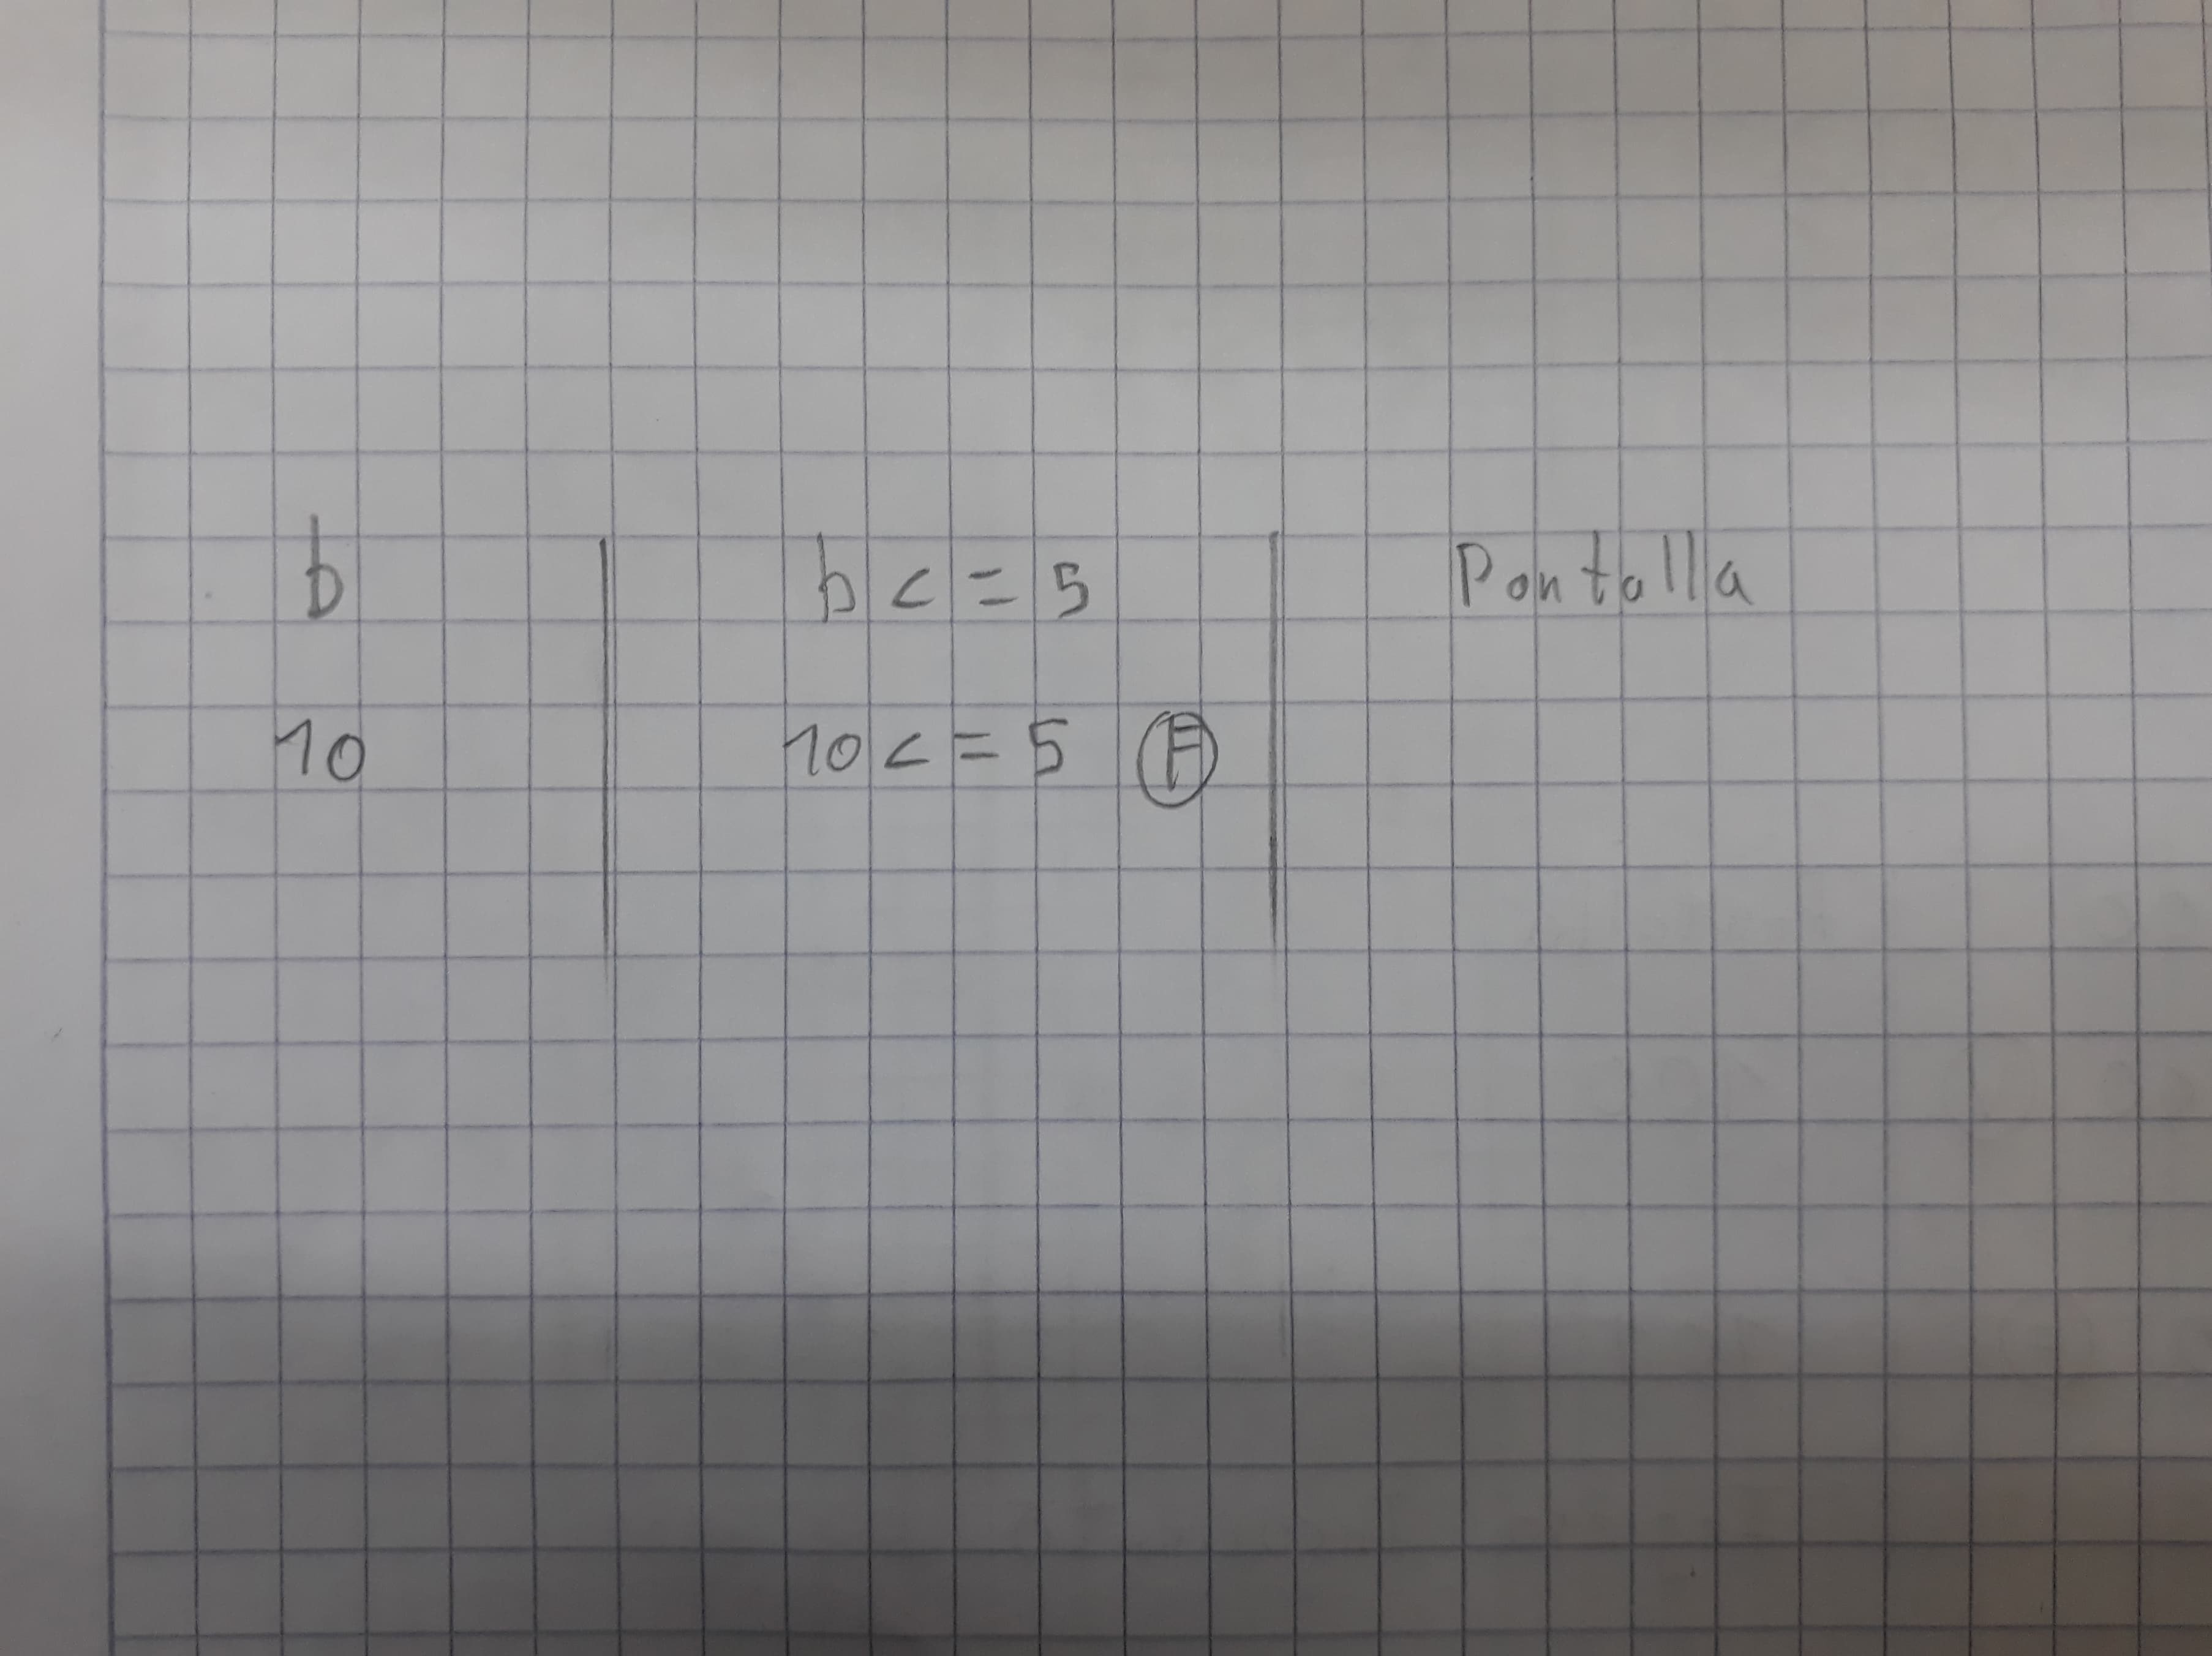 b b <= 5 Pantalla
10 10 <= 5 F